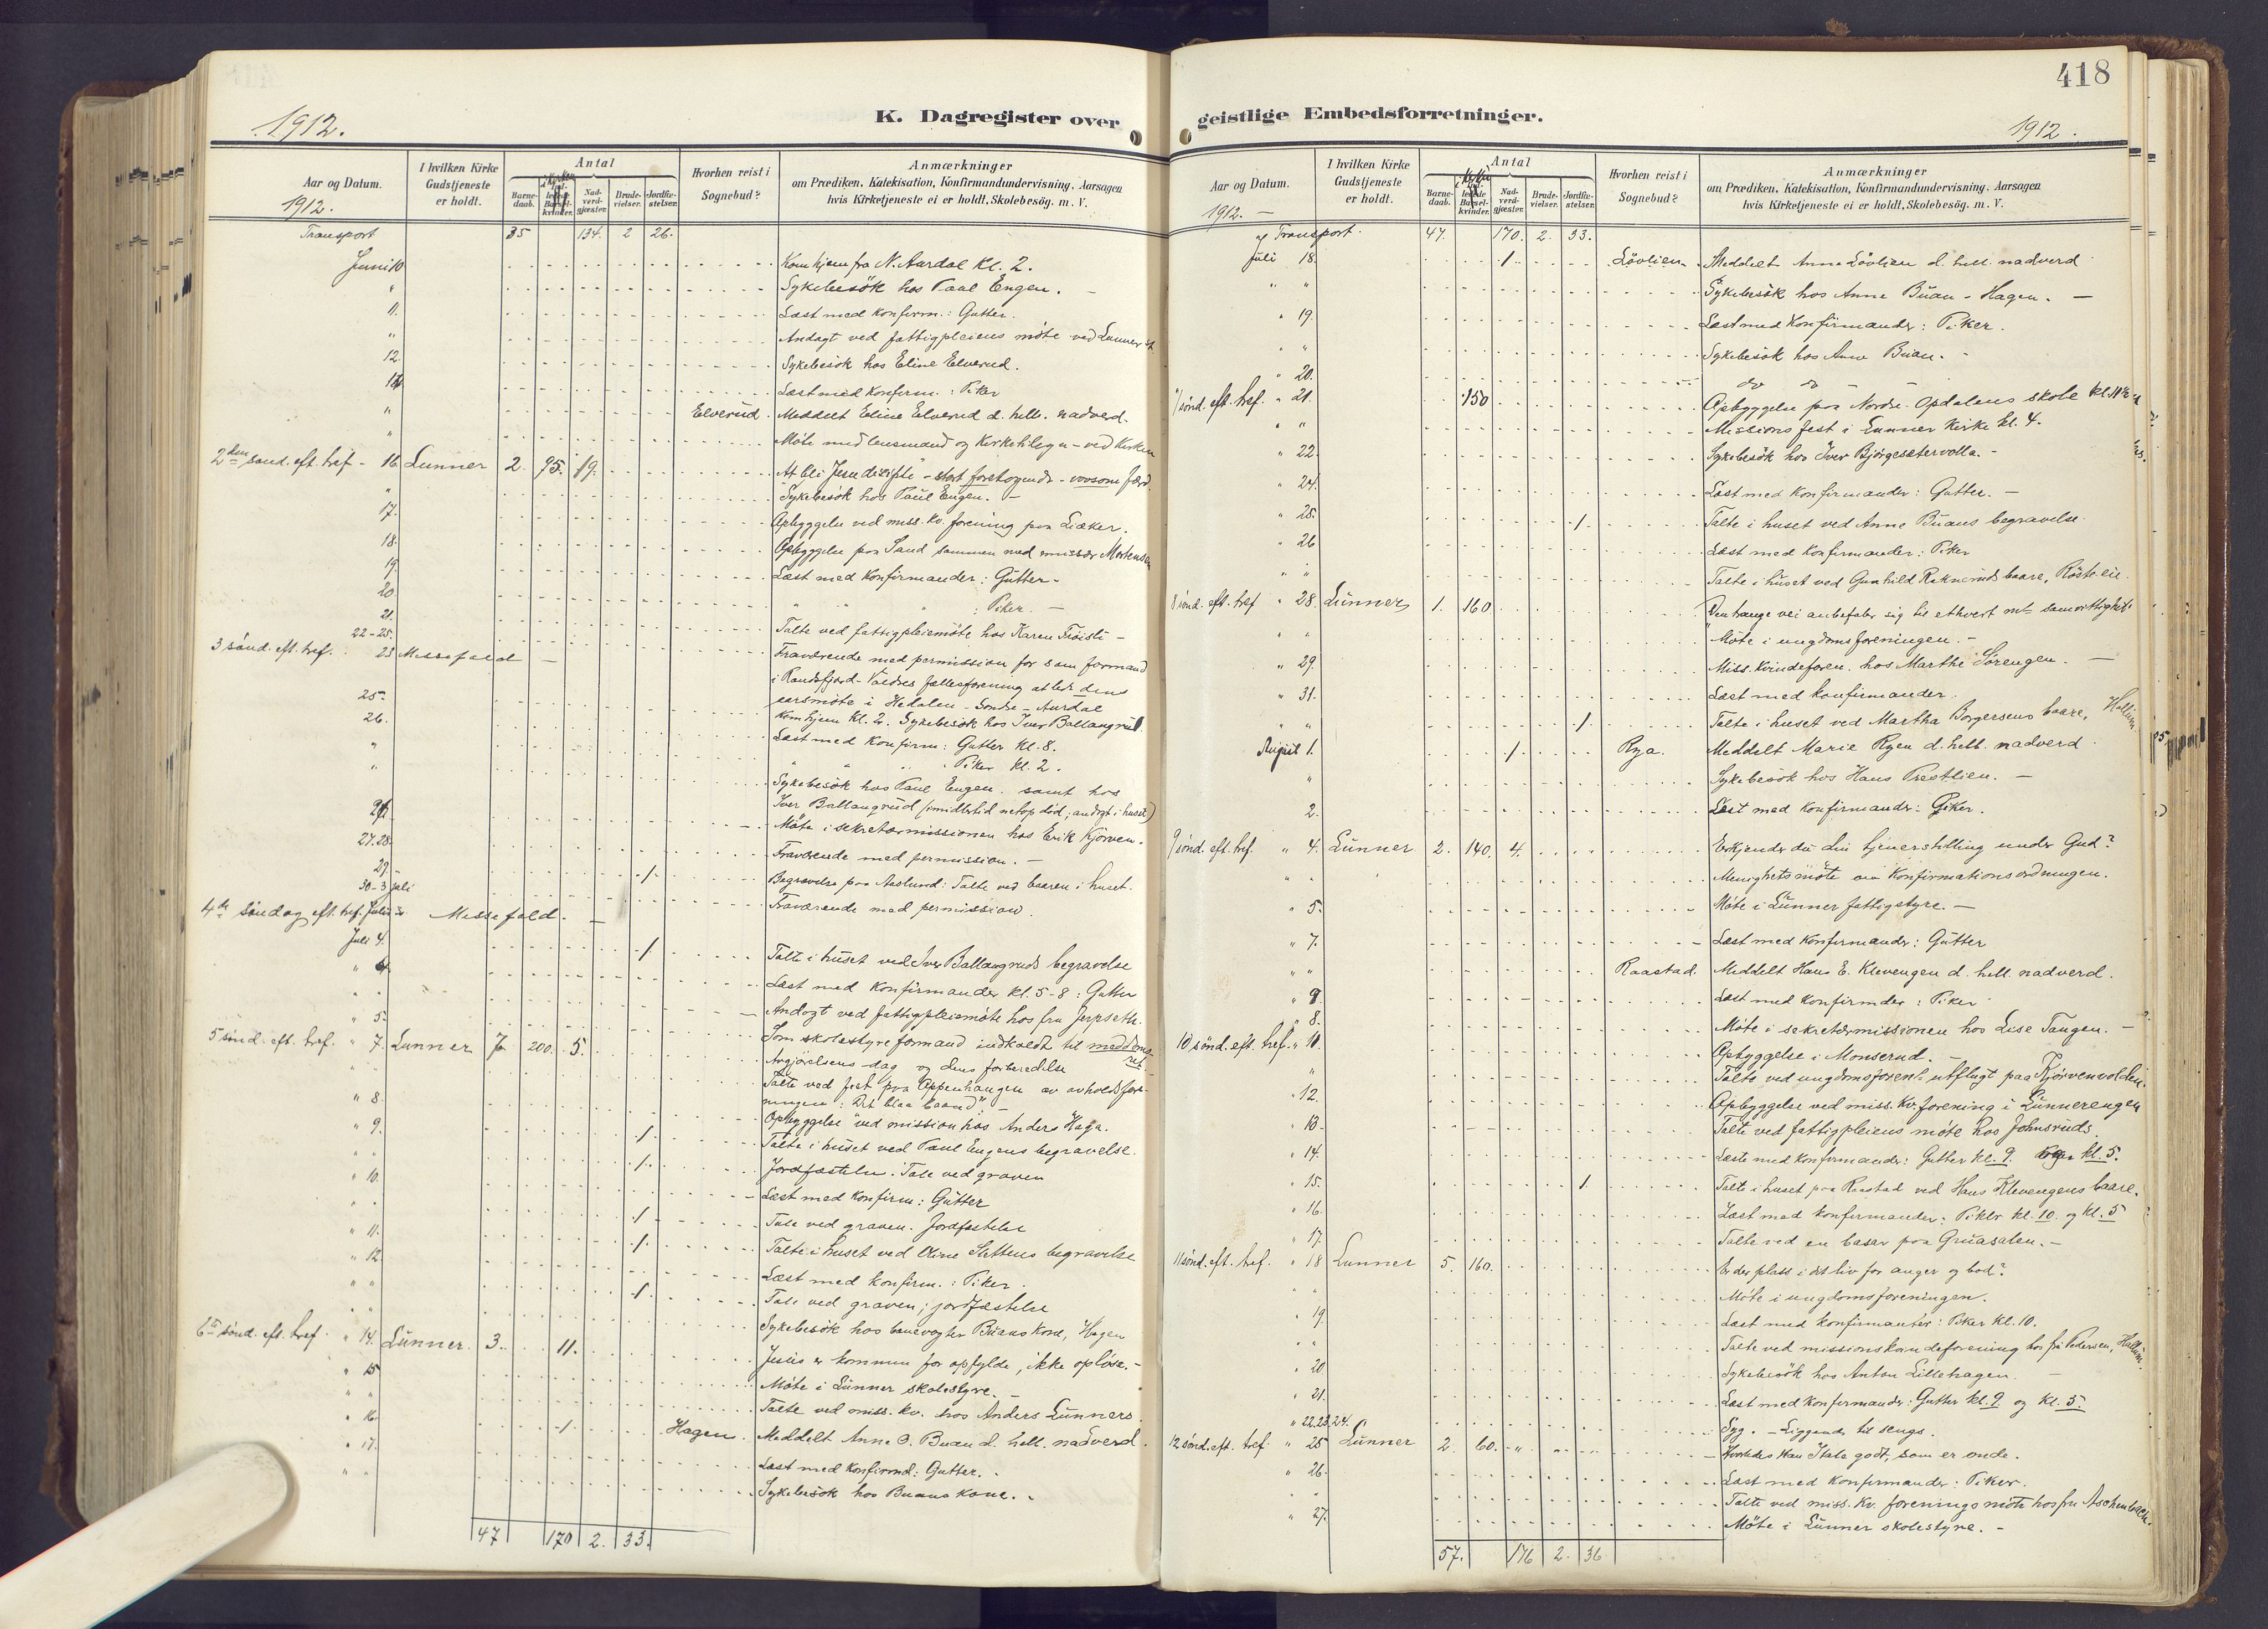 1912.
K. Dagregister over
Aar og Datum.
1912.
I hvilken Kirke
Gudstjeneste
er holdt.
Antal
Barne-
daab.
Nad-
verd-
gjæster.
Brude-
vielser.
Jordfæ-
stelser.
Hvorhen reist i
Sognebud?
Anmærkninger
om Prædiken, Katekisation, Konfirmandundervisning, Aarsagen
hvis Kirketjeneste ei er holdt, Skolebesög. m. V.
Transport 35 134. 2 26.
Juni 10 Kom hjem fra N. Aurdal kl. 2.
" Sykebesök hos Paul Engen. -
11. Læst med konfirm.: Gutter.
" Andagt ved fattigpleiens möte ved Lunner st.
12. Sykebesök hos Eline Elverud.
14 Læst med konfirm.: Piker
" Elverud. Meddelt Eline Elverud d. hell. nadverd.
" Möte med lensmand og Kirketilsyn - ved Kirken
2den sönd. eft. tref. - 16. Lunner 2. 95. 19. At bli Jesu discipel - stort foretagende - vovsom færd.
" Sykebesök hos Paul Engen. -
17. Opbyggelse ved miss. kv. forening paa Liaker.
18. Opbyggelse paa Sand sammen med emissær Mortensen
19. Læst med konfirmander: Gutter.
20. " " " : Piker. -
21. Talte ved fattigpleiemöte hos Karen Fröisli -
22-25. Fraværende med permission for som formand
3 sönd. eft. tref. 23 Messefald - i Randsfjord-Valdres fællesforening at lede dens
aarsmöte i Hedalen - Söndre-Aurdal
25. Kom hjem kl. 2. Sykebesök hos Iver Ballangrud.
26. Læst med konfirm: Gutter kl. 8.
" " " " Piker kl. 2.
" Sykebesök hos Paul Engen. samt hos
Iver Ballangrud (imidlertid netop död; andagt i huset)
Möte i sekretærmissionen hos Erik Kjörven.
27.28. Fraværende med permission. -
29. 1. Begravelse paa Aaslund: Talte ved baaren i huset.
30-3 juli Fraværende med permission.
4de söndag eft. tref. Messefald. -
Juli 4. 1 Talte i huset ved Iver Ballangruds begravelse
Læst med konfirmander kl. 5-8: Gutter
" " Andagt ved fattigpleiemöte hos fru Jerpseth.
" 5. Som skolestyreformand indkaldt til meddomsret
5 sönd. eft. tref. " 7. Lunner 7 200. 5. Avgjörelsens dag og dens forberedelse
Talte ved fest paa Oppenhaugen av avholdsfore-
ningen: "Det blaa baand". -
" 8. Opbyggelse ved mission hos Anders Haga.
" 9. 1. Talte i huset ved Paul Engens begravelse.
" " 1. Jordfæstelse. Tale ved graven
" 10. Læst med konfirm: Gutter
" " 1 Tale ved graven. Jordfæstelse
" 11. 1. Talte i huset ved Oline Slettens begravelse
" 12. Læst med konfirm.: Piker.
" " 1. Tale ved graven; jordfæstelse
" " Sykebesök hos banevogter Buans kone, Hagen
6te sönd. eft. tref. " 14. Lunner. 3. 11. Jesus er kommen for opfylde, ikke oplöse. -
" 15 Möte i Lunner skolestyre. -
" " Talte ved miss. kv. hos Anders Lunners.
" 16. 1. Hagen. Meddelt Anne O. Buan d. hell. nadverd.
" 17. Læst med konfirmd: Gutter.
" " Sykebesök hos Buans kone.
47 170 2. 33.
418
geistlige Embedsforretninger.
1912.
Aar og Datum.
1912. -
I hvilken Kirke
Gudstjeneste
er holdt.
Antal
Barne-
daab.
Nad-
verd-
gjæster.
Brude-
vielser.
Jordfæ-
stelser.
Hvorhen reist i
Sognebud?
Anmærkninger
om Prædiken, Katekisation, Konfirmandundervisning, Aarsagen
hvis Kirketjeneste ei er holdt, Skolebesög. m. V.
Transport. 47. 170. 2. 33.
Juli 18. 1. Lövlien. Meddelt Anna Lövlien d. hell. nadverd
" " Sykebesök hos Anne Buan - Hagen. -
" 19. Læst med konfirmander: Piker.
" " Sykebesök hos Anne Buan. -
" 20. do do
7 sönd. eft. tref. " 21. 150 Opbyggelse paa Nordre Opdalens skole
" " Missionsfest i Lunner Kirke kl. 4.
" 22. Sykebesök hos Iver Bjørgesetervolla. -
" 24. Læst med konfirmander: Gutter. -
" 25. 1. Talte i huset ved Anne Buans begravelse
" 26 Læst med konfirmander: Piker
" " Talte i huset ved Gunhild baare,
8 sönd. eft. tref " 28. Lunner 1. 160. Den trange vei anbefaler sig til ethvert
" " Möte i ungdomsforeningen. -
" 29. Miss. kvindeforen. hos Marthe Sörengen. -
" 31. Læst med konfirmander.
" " 1. Talte i huset ved Martha Borgersens baare, Hallum
August 1. 1. Rya. Meddelt Marie Ryen d. hell. nadverd.
" Sykebesök hos Hans Prestlien. -
2. Læst med konfirmander: Piker.
9 sönd. eft. tref. " 4. Lunner 2. 140. 4. Erkjender du din tjenerstilling under Gud?
" " Menighetsmöte om konfirmationsordningen.
" 5. Möte i Lunner fattigstyre. -
" 7. Læst med konfirmander: Gutter
" " Raastad. Meddelt Hans E. Klevengen d. hell. nadverd.
" 9. Læst med konfirmder: Piker
" 8. Möte i sekretærmissionen hos Lise Tangen. -
10 sönd. eft. tref. " 11. Opbyggelse i Monserud. -
" Talte ved ungdomsforen.s utflugt paa Kjörvenvolden.
" 12. Opbyggelse ved miss. kv. forening i Lunnerengen
" 13. Talte ved fattigpleiens möte hos Johnsruds
" 14. Læste med konfirmander: Gutter kl. 9. kl. 5.
" 15. 1. Talte i huset paa Raastad ved Hans Klevengens baare.
" 16. Læst med konfirmander: Piker kl. 10. og kl. 5
" 17. Talte ved en basar paa Gruasalen. -
11 sönd. eft. tref. " 18 Lunner 5. 160. Er der plass i dit liv for anger og bod?
" " Möte i ungdomsforeningen.
" 19. Læst med konfirmanter: Piker kl. 10.
" " Talte ved missionskvindeforening hos fru Pedersen, Hallum.
" 20 Sykebesök hos Anton Lillehagen. -
" 21. Læst med konfirmander: Gutter kl. 9 og kl. 5.
" 22.23.24. Syg. - Liggende til sengs.
12 sönd. eft. tref " 25 Lunner 2. 60. Hvorledes kan I tale godt, som er onde.
" 26. Læst med konfirmander: Piker.
" " Talte ved miss. kv. foreningsmöte hos fru Aschenbach.
" 27. Möte i Lunner skolestyre. -
57. 176 2. 36